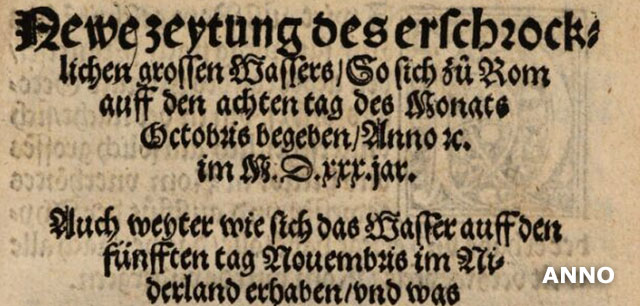 Newe zeytung des erschrock-
lichen grossen Wassers/ So sich zů Rom
auff den achten tag des Monats
Octobris begeben/ Anno ꝛc.
im M.D.xxx.jar.
Auch weyter wie sich das Wasser auff den
fünfften tag Nouembris im Ni-
derland erhaben/ vnd was
ANNO